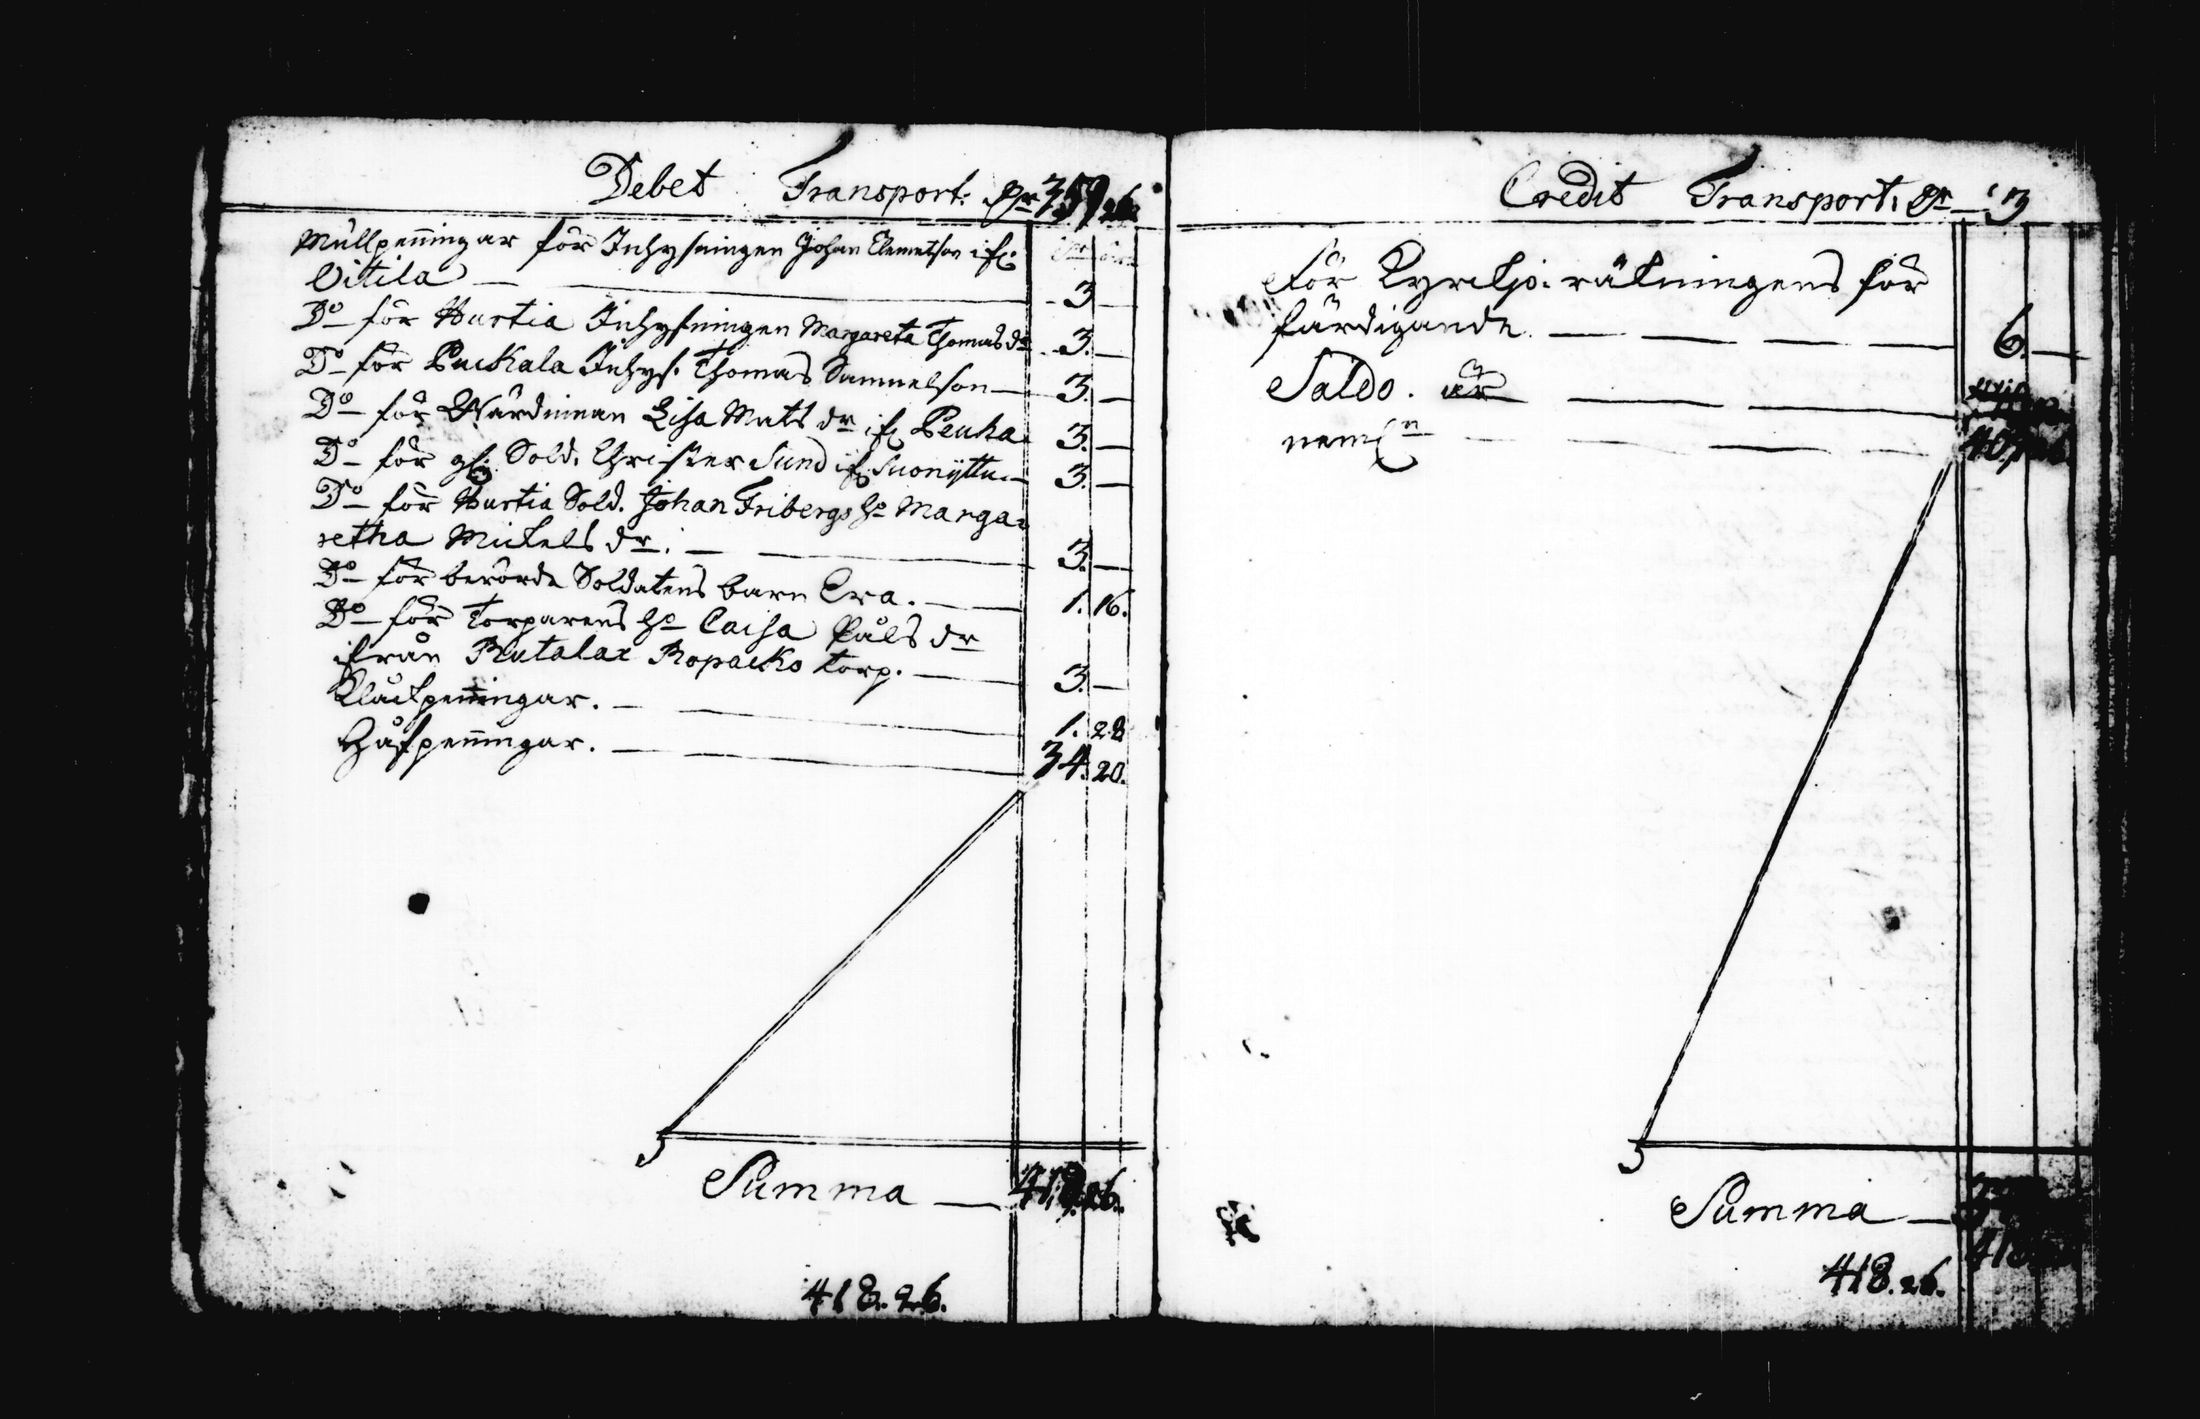 Debet Transport. Dr 359.26.
Mullpenningar för Inhysningen Johan Clemetson if:
Vitila — 3 —
Do för Hurtia Inhysningen Margareta Thomas dr 3. —
Do för Puckala Inhys. Thomas Samuelson — 3. —
Do för Wärdinnan Lisa Mats dr if: Peuha 3. —
Do för gl: Sold. Christer Sund if: Suonyttu — 3. —
Do för Hurtia Sold. Johan Fribergs ho Marga=
retha Mickels dr. — 3. —
Do för berörde Soldatens barn Eva. — 1. 16.
Do för Torparens ho Caisa Påls dr
ifrån Rutalax Ropacko torp. — 3. —
Klåckpenningar. — 1. 28
Håfpenningar. — 34. 20.
Summa — 418.26.
418. 26.
Credit Transport. Dr — 3
För Kyrkjo-räkningens för
färdigande. — 6. —
Saldo. är —
neml:n —
Summa —
418. 26.